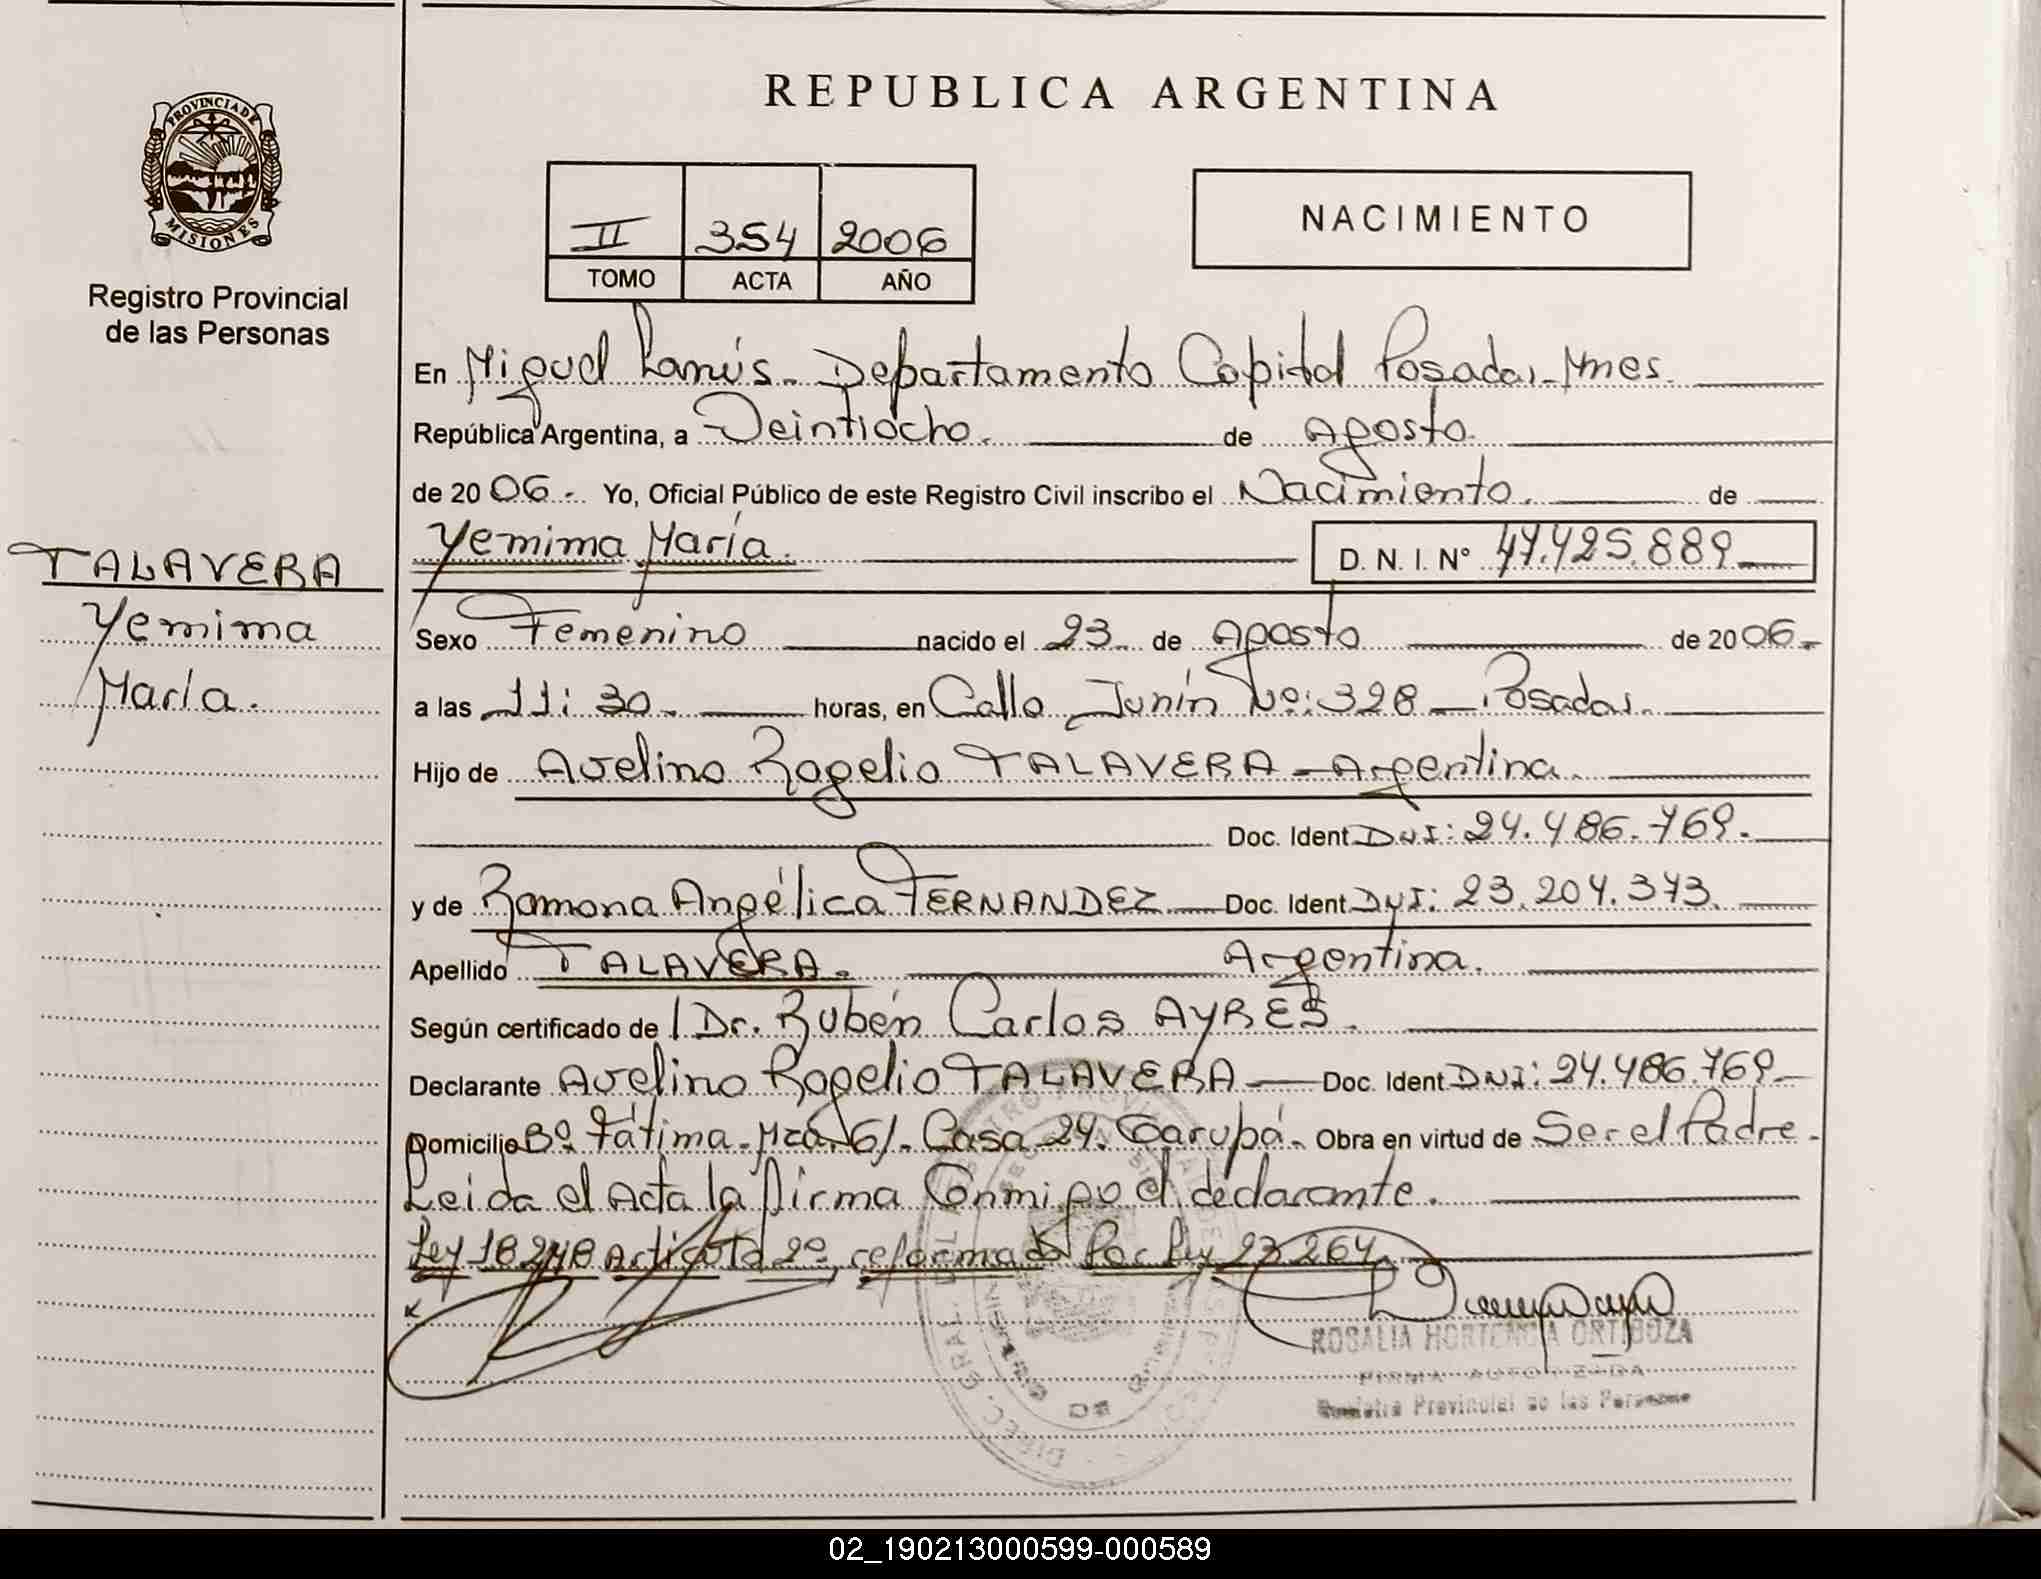 REPUBLICA ARGENTINA
PROVINCIA DE
MISIONES
Registro Provincial
de las Personas
II 354 2006
TOMO ACTA AÑO
NACIMIENTO
En Miguel Lanús. Departamento Capital Posadas - Mnes.
República Argentina, a Veintiocho. de Agosto
de 2006.- Yo, Oficial Público de este Registro Civil inscribo el Nacimiento. de
TALAVERA
Yemima
María.
Yemima María. D. N. I. Nº 47.425.889
Sexo Femenino nacido el 23 de Agosto de 2006.-
a las 11:30. horas, en Calle Junín Nº: 328 - Posadas.
Hijo de Avelino Rogelio TALAVERA - Argentina.
Doc. Ident DNI: 24.486.769.
y de Ramona Angélica FERNANDEZ Doc. Ident DNI: 23.204.373.
Apellido TALAVERA. Argentina.
Según certificado de / Dr. Rubén Carlos AYRES.
Declarante Avelino Rogelio TALAVERA Doc. Ident DNI: 24.486.769
Domicilio Bº Fátima. Mza. 6/. Casa 24. Garupá. Obra en virtud de Ser el Padre.
Leida el Acta la firma Conmigo el declarante.
Ley 18.248 Articulo 2º, reformado Por Ley 23.264.
ROSALIA HORTENCIA ORTIGOZA
FIRMA AUTORIZADA
Registro Provincial de las Personas
02_190213000599-000589